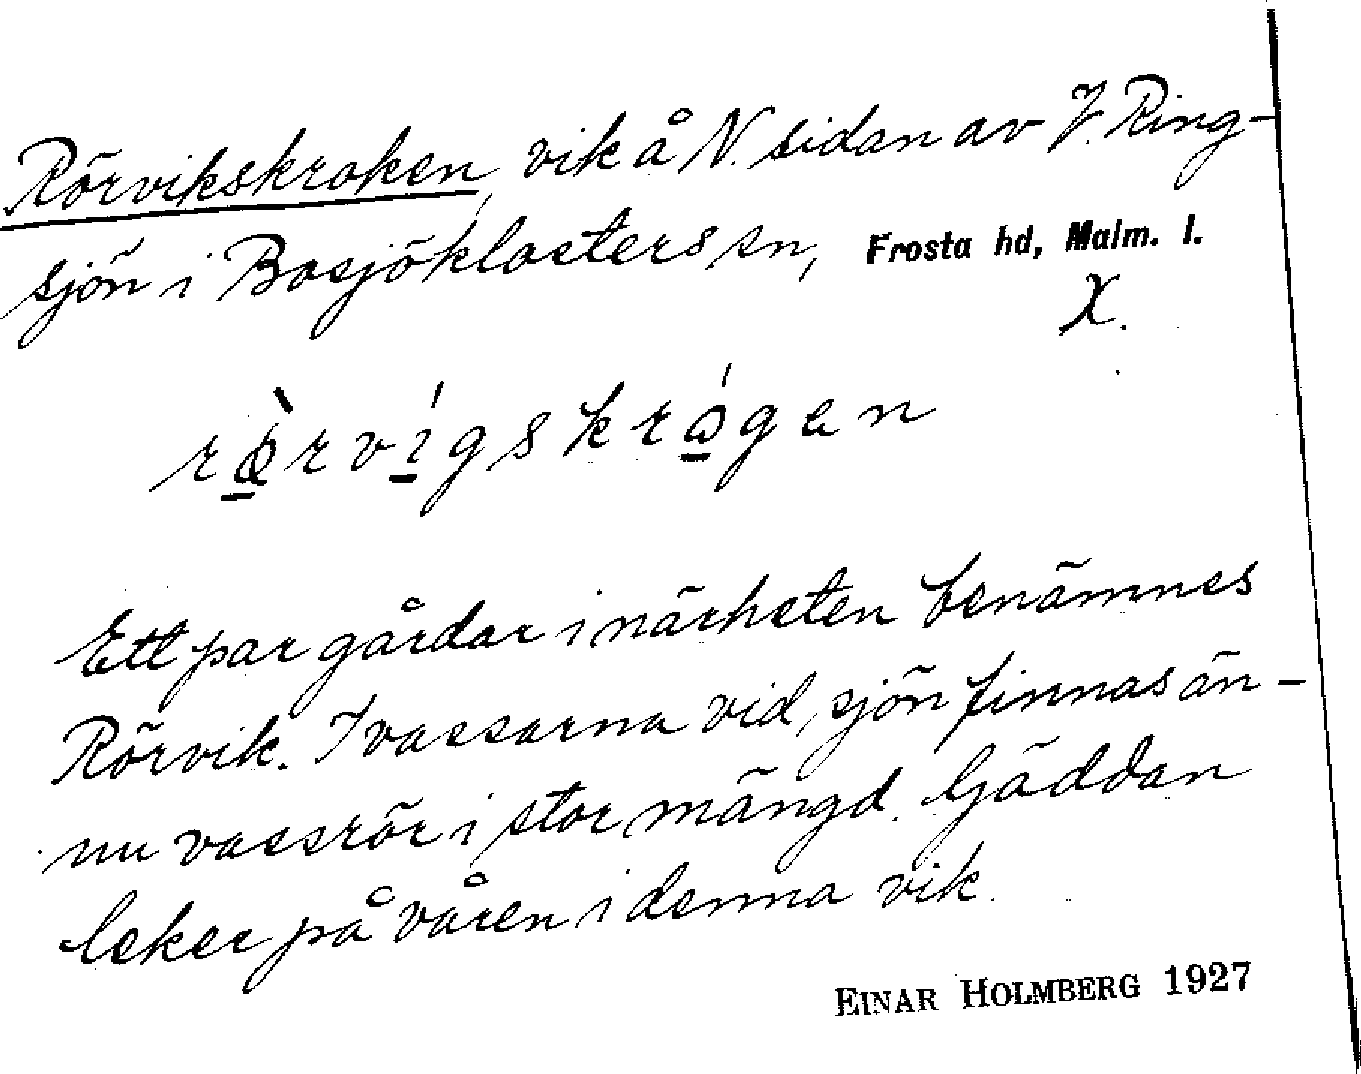 Rörvikskroken, vik å N. sidan av V. Ring-
sjön i Bosjöklosters sn, Frosta hd, Malm. l.
X.
rø̀rvígskrógen
Ett par gårdar i närheten benämnes
Rörvik. I vassarna vid sjön finnas än-
nu vassrör i stor mängd. Gäddan
leker på våren i denna vik.
EINAR HOLMBERG 1927